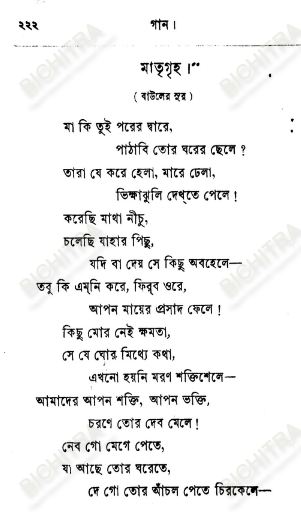 ২২২
গান।
মাতৃগৃহ।
( বাউলের সুর )
মা কি তুই পরের দ্বারে,
পাঠাবি তোর ঘরের ছেলে ?
তারা যে করে হেলা, মারে ঢেলা,
ভিক্ষাঝুলি দেখ্‌তে পেলে !
করেছি মাথা নীচু,
চলেছি যাহার পিছু,
যদি বা দেয় সে কিছু অবহেলে—
তবু কি এম্‌নি করে, ফির্‌ব ওরে,
আপন মায়ের প্রসাদ ফেলে !
কিছু মোর নেই ক্ষমতা,
সে যে ঘোর মিথ্যে কথা,
এখনো হয়নি মরণ শক্তিশেলে—
আমাদের আপন শক্তি, আপন ভক্তি,
চরণে তোর দেব মেলে !
নেব গো মেগে পেতে,
যা আছে তোর ঘরেতে,
দে গো তোর আঁচল পেতে চিরকেলে—
BICHITRA